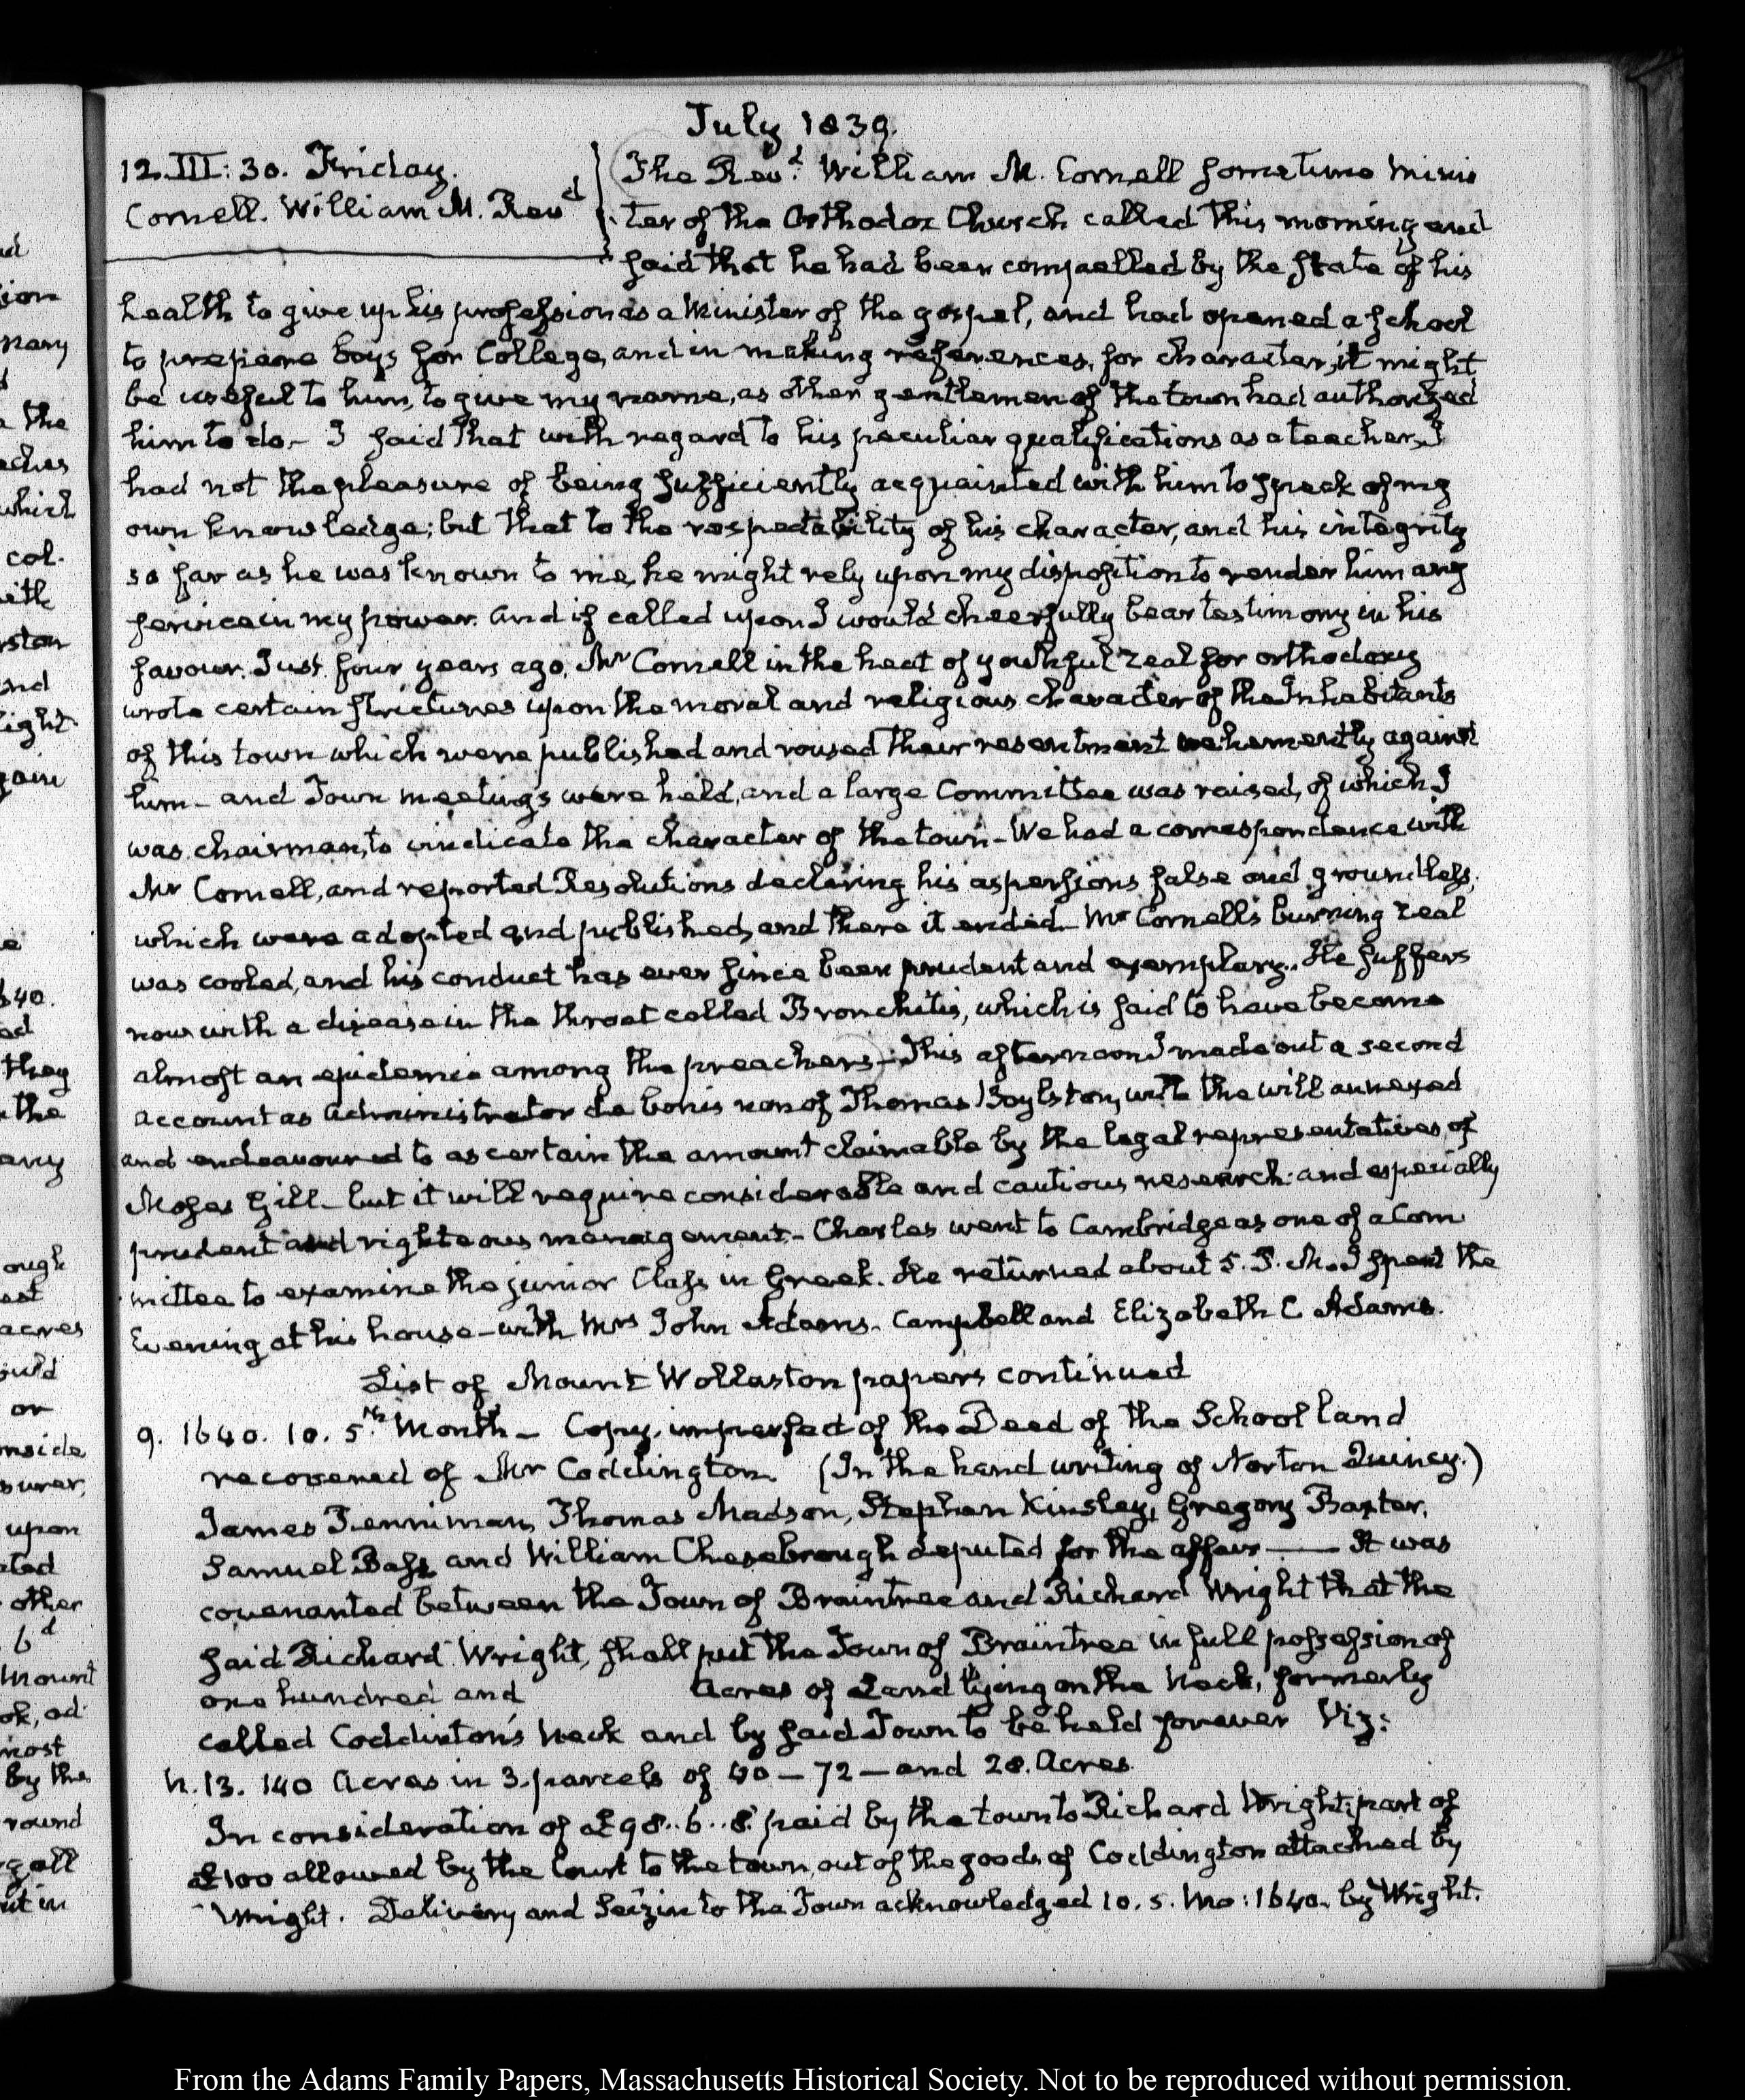 July 1839.
12. III: 30. Friday.
Cornell. William M. Revd
The Revd. William M. Cornell sometime minis
ter of the Orthodox Church called this morning and
said that he had been compelled by the state of his
health to give up his profession as a Minister of the gospel, and had opened a school
to prepare boys for College, and in making references, for character, it might
be useful to him, to give my name, as other gentlemen of the town had authorized
him to do. I said that with regard to his peculiar qualifications as a teacher, I
had not the pleasure of being sufficiently acquainted with him to speak of my
own knowledge; but that to the respectability of his character, and his integrity
so far as he was known to me, he might rely upon my disposition to render him any
service in my power. And if called upon I would cheerfully bear testimony in his
favour. Just four years ago, Mr Cornell in the heat of youthful zeal for orthodoxy
wrote certain strictures upon the moral and religious character of the Inhabitants
of this town which were published and roused their resentment vehemently against
him - and Town meetings were held, and a large Committee was raised, of which I
was chairman, to vindicate the character of the town - We had a correspondence with
Mr Cornell, and reported Resolutions declaring his aspersions false and groundless,
which were adopted and published, and there it ended - Mr Cornell's burning zeal
was cooled, and his conduct has ever since been prudent and exemplary. He suffers
now with a disease in the throat called Bronchitis, which is said to have become
almost an epidemic among the preachers - This afternoon I made out a second
account as Administrator de bonis non of Thomas Boylston, with the will annexed
and endeavoured to ascertain the amount claimable by the legal representatives of
Moses Gill - but it will require considerable and cautious research: and especially
prudent and righteous management - Charles went to Cambridge as one of a Com
mittee to examine the junior Class in Greek. He returned about 5. P. M. I spent the
Evening at his house - with Mrs John Adams. Campbell and Elizabeth C Adams.
List of Mount Wollaston papers continued
9. 1640. 10. 5th. Month - Copy, imperfect of the Deed of the School land
recovered of Mr Coddington. (In the hand writing of Norton Quincy.)
James Penniman, Thomas Madson, Stephen Kinsley, Gregory Baxter,
Samuel Bass, and William Chesebrough deputed for the affair —— It was
covenanted between the Town of Braintree and Richard Wright that the
said Richard Wright, shall put the Town of Braintree in full possession of
one hundred and Acres of Land lying on the Neck, formerly
called Coddinton's Neck and by said Town to be held forever Viz:
N. 13. 140 Acres in 3 parcels of 40 - 72 - and 28. Acres.
In consideration of £98..6..8. paid by the town to Richard Wright: part of
£100 allowed by the Court to the town, out of the goods of Coddington attached by
Wright. Delivery and Seizin to the Town acknowledged 10. 5. Mo: 1640. by Wright.
nd
ion
many
the
which
col.
with
and
ight
gain
e
640.
ed
they
the
any
ough
est
acres
ould
or
inside
surer,
upon
ated
other
6d
Mount
ok, ad
most
by the
round
gall
ut in
From the Adams Family Papers, Massachusetts Historical Society. Not to be reproduced without permission.